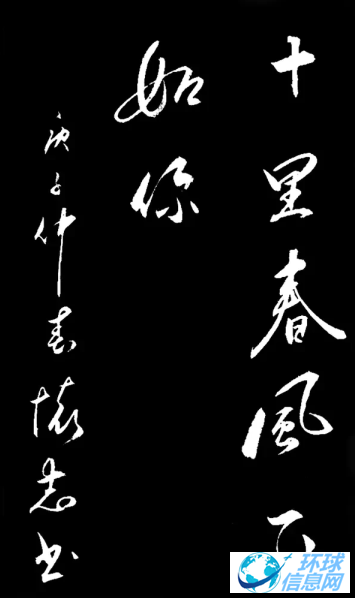 十里春風不
如你
庚子仲春懷志书
环球
信息网